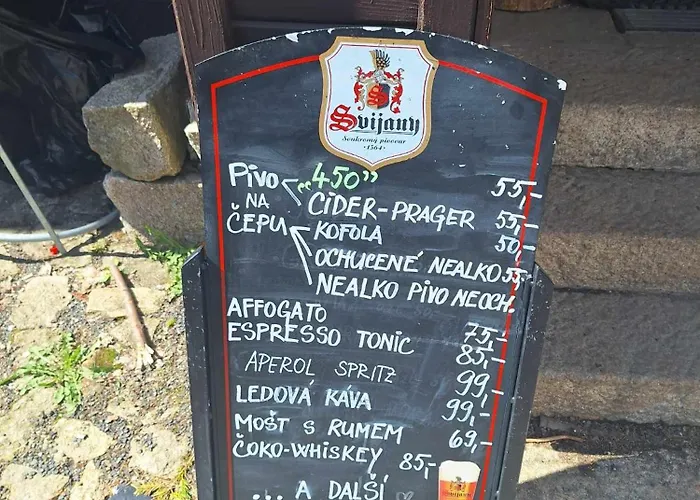 Svijany
Soukromý pivovar
·1564·
PIVO "450" 55,-
NA CIDER-PRAGER 55,-
ČEPU KOFOLA 50,-
OCHUCENÉ NEALKO 55,-
NEALKO PIVO NEOCH.
AFFOGATO 75,-
ESPRESSO TONIC 85,-
APEROL SPRITZ 99,-
LEDOVÁ KÁVA 99,-
MOŠT S RUMEM 69,-
ČOKO-WHISKEY 85,-
... A DALŠÍ